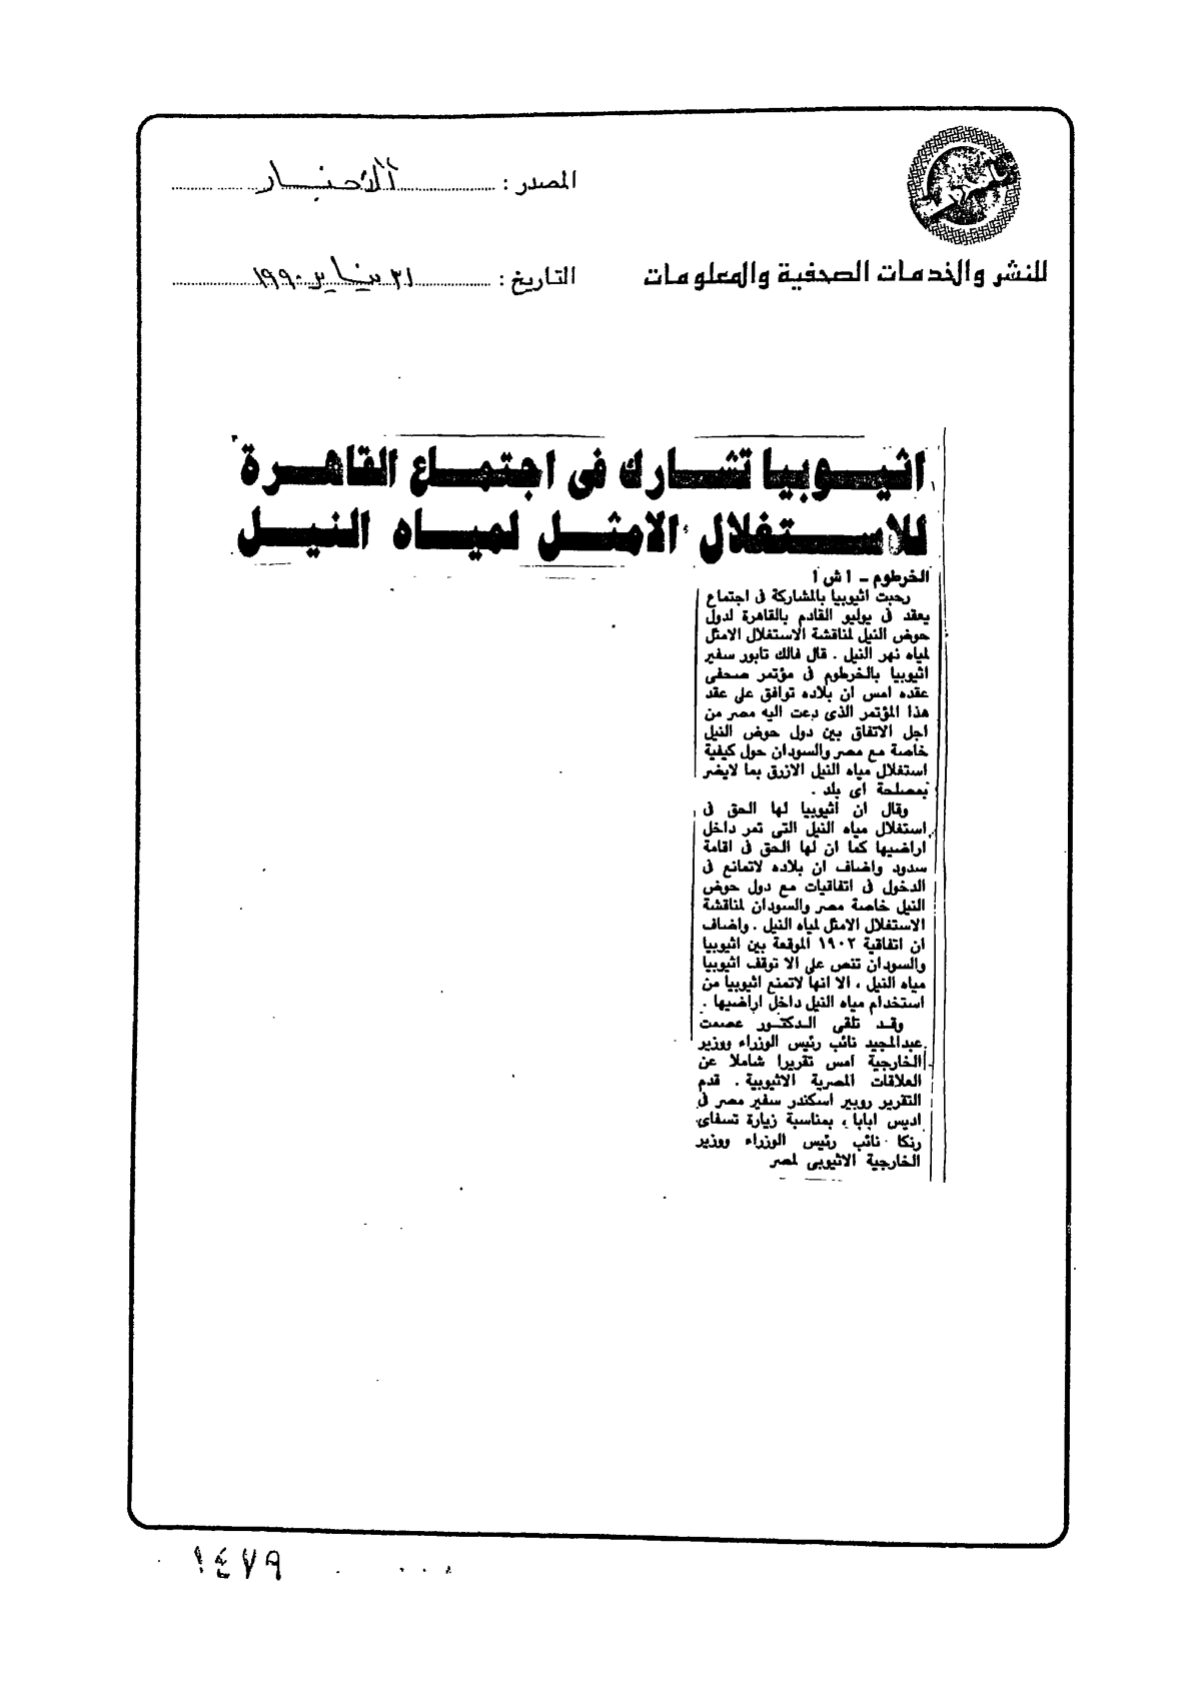 المصدر : الأخبار
للنشر والخدمات الصحفية والمعلومات
التاريخ : ٢١ يناير ١٩٩٠
اثيوبيا تشارك فى اجتماع القاهرة
للاستغلال الامثل لمياه النيل
الخرطوم - ا ش ا
رحبت اثيوبيا بالمشاركة فى اجتماع
يعقد فى يوليو القادم بالقاهرة لدول
حوض النيل لمناقشة الاستغلال الامثل
لمياه نهر النيل . قال فالك تابور سفير
اثيوبيا بالخرطوم فى مؤتمر صحفى
عقده امس ان بلاده توافق على عقد
هذا المؤتمر الذى دعت اليه مصر من
اجل الاتفاق بين دول حوض النيل
خاصة مع مصر والسودان حول كيفية
استغلال مياه النيل الازرق بما لايضر
بمصلحة اى بلد .
وقال ان اثيوبيا لها الحق فى
استغلال مياه النيل التى تمر داخل
اراضيها كما ان لها الحق فى اقامة
سدود واضاف ان بلاده لاتمانع فى
الدخول فى اتفاقيات مع دول حوض
النيل خاصة مصر والسودان لمناقشة
الاستغلال الامثل لمياه النيل . واضاف
ان اتفاقية ١٩٠٢ الموقعة بين اثيوبيا
والسودان تنص على الا توقف اثيوبيا
مياه النيل ، الا انها لاتمنع اثيوبيا من
استخدام مياه النيل داخل اراضيها .
وقد تلقى الدكتور عصمت
عبدالمجيد نائب رئيس الوزراء ووزير
الخارجية امس تقريرا شاملا عن
العلاقات المصرية الاثيوبية . قدم
التقرير روبير اسكندر سفير مصر فى
اديس ابابا ، بمناسبة زيارة تسفاى
رنكا نائب رئيس الوزراء ووزير
الخارجية الاثيوبى لمصر
١٤٧٩